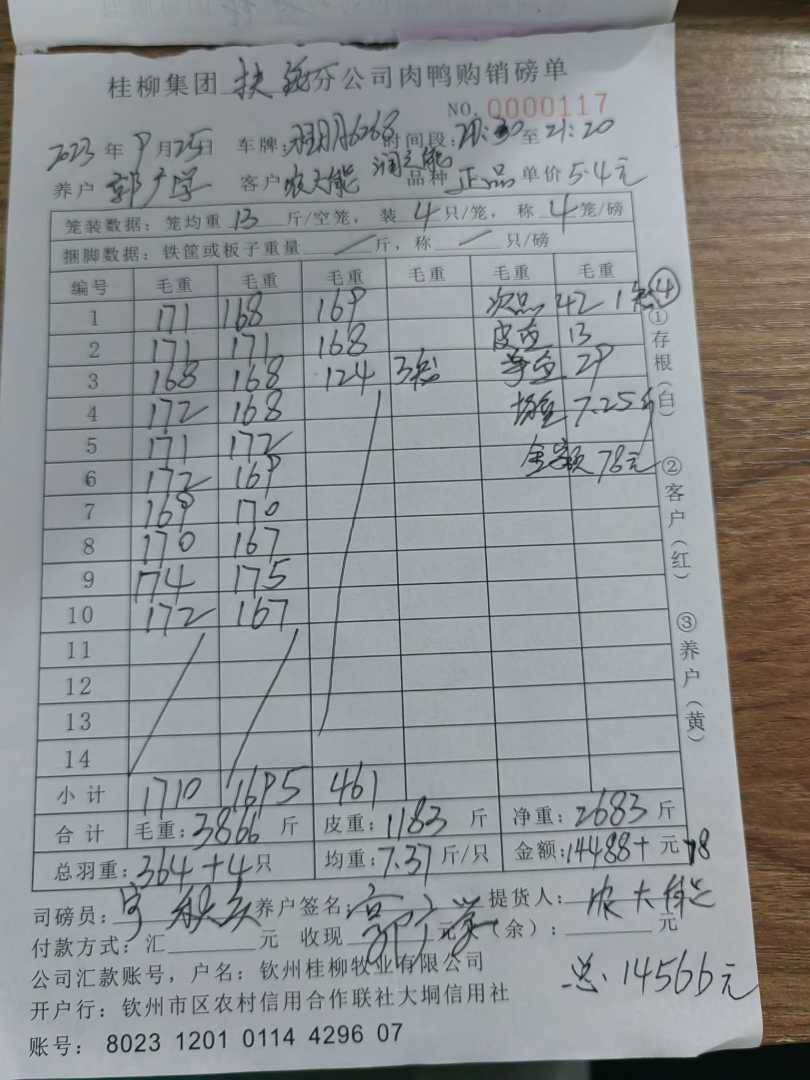 桂柳集团扶绥分公司肉鸭购销磅单
NO. 0000117
2023年9月25日 车牌: 6068 时间段: 20:30至21:20
养户 郭广学 客户 农大能 品种 正品 单价 5.4元
笼装数据: 笼均重 13 斤/空笼, 装 4 只/笼, 称 4 笼/磅
捆脚数据: 铁筐或板子重量 / 斤, 称 / 只/磅
编号 毛重 毛重 毛重 毛重 毛重 毛重
1 171 168 169 次品 42 1笼④
2 171 171 168 皮重 13
3 168 168 124 3笼 净重 29
4 172 168 均重 7.25斤
5 171 172 金额 78元
6 172 169
7 169 170
8 170 167
9 174 175
10 172 167
11
12
13
14
小计 1710 1695 461
合计 毛重: 3866 斤 皮重: 1183 斤 净重: 2683 斤
总羽重: 364+4只 均重: 7.37斤/只 金额: 14488+元78
司磅员: 养户签名: 郭广学 提货人: 农大能
付款方式: 汇 元 收现 元 (余): 元
公司汇款账号, 户名: 钦州桂柳牧业有限公司
总. 14566元
开户行: 钦州市区农村信用合作联社大垌信用社
账号: 8023 1201 0114 4296 07
①存根(白) ②客户(红) ③养户(黄)